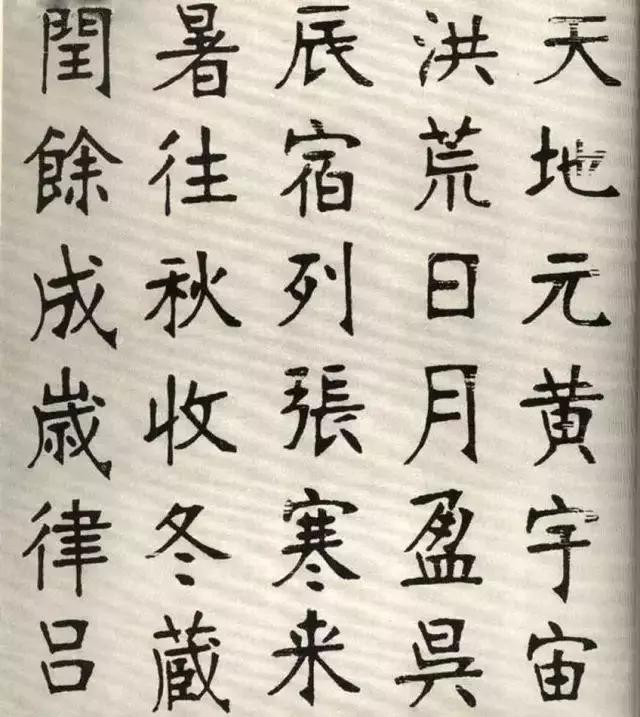 天地元黄宇宙
洪荒日月盈吳
辰宿列張寒来
暑往秋收冬蔵
閏餘成歳律吕